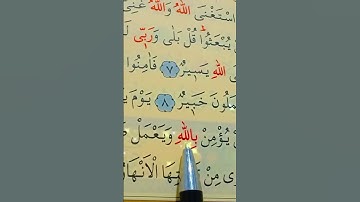 اسْتَغْنَى اللّٰهُ وَاللّٰهُ غَنِىٌّ
يُبْعَثُوا قُلْ بَلٰى وَرَبّٖى
اللّٰهِ يَسٖيرٌ ﴿٧﴾ فَاٰمِنُوا
مَلُونَ خَبٖيرٌ ﴿٨﴾ يَوْمَ
يُؤْمِنْ بِاللّٰهِ وَيَعْمَلْ
مِنْ الْاَنْهَارُ